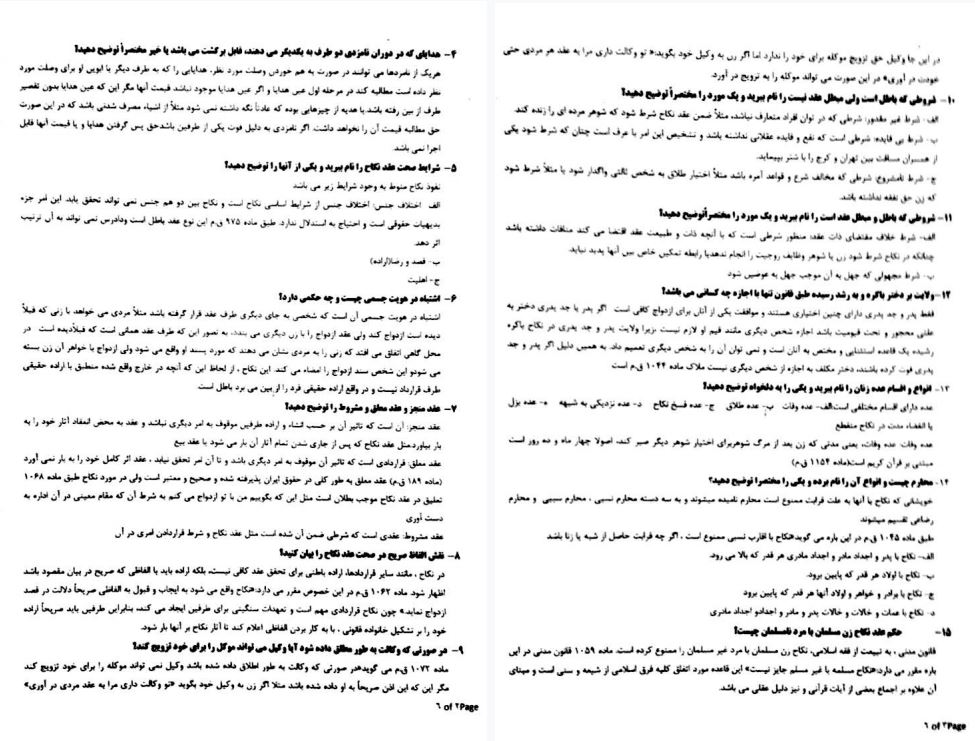 ۴- هدایای که در دوران نامزدی دو طرف به یکدیگر می دهند، قابل برگشت می باشد یا خیر مختصراً توضیح دهید؟
هریک از نامزدها می توانند در صورت به هم خوردن وصلت مورد نظر، هدایایی را که به طرف دیگر یا ابوین او برای وصلت مورد
نظر داده است مطالبه کند در مرحله اول عین هدایا و اگر عین هدایا موجود نباشد قیمت آنها مگر این که عین هدایا بدون تقصیر
طرف از بین رفته باشد.یا هدیه از چیزهایی بوده که عادتاً نگه داشته نمی شود مثلاً از اشیاء مصرف شدنی باشد که در این صورت
حق مطالبه قیمت آن را نخواهد داشت. اگر نامزدی به دلیل فوت یکی از طرفین باشدحق پس گرفتن هدایا و یا قیمت آنها قابل
اجرا نمی باشد
۵- شرایط صحت عقد نکاح را نام ببرید و یکی از آنها را توضیح دهید؟
نفوذ نکاح منوط به وجود شرایط زیر می باشد
الف اختلاف جنس: اختلاف جنس از شرایط اساسی نکاح است و نکاح بین دو هم جنس نمی تواند تحقق یابد. این امر جزء
بدیهیات حقوقی است و احتیاج به استدلال ندارد. طبق ماده ۹۷۵ ق.م این نوع عقد باطل است ودادرس نمی تواند به آن ترتیب
اثر دهد.
ب- قصد و رضا(اراده)
ج- اهلیت
۶- اشتباه در هویت جسمی چیست و چه حکمی دارد؟
اشتباه در هویت جسمی آن است که شخصی به جای دیگری طرف عقد قرار گرفته باشد مثلاً مردی می خواهد با زنی که قبلاً
دیده است ازدواج کند ولی عقد ازدواج را با زن دیگری می بندد، به تصور این که طرف عقد همانی است که قبلاًدیده است در
محل گاهی اتفاق می افتد که زنی را به مردی نشان می دهند که مورد پسند او واقع می شود ولی ازدواج با خواهر آن زن بسته
می شودو این شخص سند ازدواج را امضاء می کند. این نکاح ، از لحاظ این که آنچه در خارج واقع شده منطبق با اراده حقیقی
طرف قرارداد نیست و در واقع اراده حقیقی فرد را از بین می برد باطل است
۷- عقد منجز و عقد معلق و مشروط را توضیح دهید؟
عقد منجز: آن است که تاثیر آن بر حسب انشاء و اراده طرفین موقوف به امر دیگری نباشد و عقد به محض انعقاد آثار خود را به
بار بیاورد.مثل عقد نکاح که پس از جاری شدن تمام آثار آن بار می شود یا عقد بیع
عقد معلق: قراردادی است که تاثیر آن موقوف به امر دیگری باشد و تا آن امر تحقق نیابد ، عقد اثر کامل خود را به بار نمی آورد
(ماده ۱۸۹ ق.م) عقد معلق به طور کلی در حقوق ایران پذیرفته شده و صحیح و معتبر است ولی در مورد نکاح طبق ماده ۱۰۶۸
تعلیق در عقد نکاح موجب بطلان است مثل این که بگوییم من با تو ازدواج می کنم به شرط آن که مقام معینی در آن اداره به
دست آوری
عقد مشروط: عقدی است که شرطی ضمن آن شده است مثل عقد نکاح و شرط قراردادن امری در آن
۸- نقش الفاظ صریح در صحت عقد نکاح را بیان کنید؟
در نکاح ، مانند سایر قراردادها، اراده باطنی برای تحقق عقد کافی نیست، بلکه اراده باید با الفاظی که صریح در بیان مقصود باشد
اظهار شود. ماده ۱۰۶۲ ق.م در این خصوص مقرر می دارد:«نکاح واقع می شود به ایجاب و قبول به الفاظی صریحاً دلالت در قصد
ازدواج نماید.» چون نکاح قراردادی مهم است و تعهدات سنگینی برای طرفین ایجاد می کند، بنابراین طرفین باید صریحاً اراده
خود را بر تشکیل خانواده قانونی ، با به کار بردن الفاظی اعلام کند تا آثار نکاح بر آنها بار شود.
۹- در صورتی که وکالت به طور مطلق داده شود آیا وکیل می تواند موکل را برای خود تزویج کند؟
ماده ۱۰۷۲ ق.م می گوید:در صورتی که وکالت به طور اطلاق داده شده باشد وکیل نمی تواند موکله را برای خود تزویج کند
مگر این که این اذن صریحاً به او داده شده باشد مثلا اگر زن به وکیل خود بگوید «تو وکالت داری مرا به عقد مردی در آوری»
۶ of ۲Page
در این جا وکیل حق تزویج موکله برای خود را ندارد اما اگر زن به وکیل خود بگوید:« تو وکالت داری مرا به عقد هر مردی حتی
خودت در آوری» در این صورت می تواند موکله را به تزویج در آورد.
۱۰- شروطی که باطل است ولی مبطل عقد نیست را نام ببرید و یک مورد را مختصراً توضیح دهید؟
الف- شرط غیر مقدور: شرطی که در توان افراد متعارف نباشد، مثلاً ضمن عقد نکاح شرط شود که شوهر مرده ای را زنده کند.
ب- شرط بی فایده: شرطی است که نفع و فایده عقلائی نداشته باشد و تشخیص این امر با عرف است چنان که شرط شود یکی
از همسران مسافت بین تهران و کرج را با شتر بپیماید.
ج- شرط نامشروع: شرطی که مخالف شرع و قواعد آمره باشد مثلاً اختیار طلاق به شخص ثالثی واگذار شود یا مثلاً شرط شود
که زن حق نفقه نداشته باشد.
۱۱- شروطی که باطل و مبطل عقد است را نام ببرید و یک مورد را مختصراًتوضیح دهید؟
الف- شرط خلاف مقتضای ذات عقد: منظور شرطی است که با آنچه ذات و طبیعت عقد اقتضا می کند منافات داشته باشد
چنانکه در نکاح شرط شود زن یا شوهر وظایف زوجیت را انجام ندهدیا رابطه تمکین خاص بین آنها پدید نیاید.
ب- شرط مجهولی که جهل به آن موجب جهل به عوضین شود
۱۲- ولایت بر دختر باکره و به رشد رسیده طبق قانون تنها با اجازه چه کسانی می باشد؟
فقط پدر و جد پدری دارای چنین اختیاری هستند و موافقت یکی از آنان برای ازدواج کافی است اگر پدر یا جد پدری دختر به
علتی محجور و تحت قیمومیت باشد اجازه شخص دیگری مانند قیم او لازم نیست زیرا ولایت پدر و جد پدری در نکاح باکره
رشیده یک قاعده استثنایی و مختص به آنان است و نمی توان آن را به شخص دیگری تعمیم داد. به همین دلیل اگر پدر و جد
پدری فوت کرده باشند، دختر مکلف به اجازه از شخص دیگری نیست ملاک ماده ۱۰۴۴ ق.م است
۱۳- انواع و اقسام عده زنان را نام ببرید و یکی را به دلخواه توضیح دهید؟
عده دارای اقسام مختلفی است:الف- عده وفات ب- عده طلاق ج- عده فسخ نکاح د- عده نزدیکی به شبهه ه- عده بزل
یا انقضاء مدت در نکاح منقطع
عده وفات: عده وفات، یعنی مدتی که زن بعد از مرگ شوهربرای اختیار شوهر دیگر صبر کند، اصولا چهار ماه و ده روز است
مبتنی بر قرآن کریم است(ماده ۱۱۵۴ ق.م)
۱۴- محارم چیست و انواع آن را نام برده و یکی را مختصراً توضیح دهید؟
خویشانی که نکاح با آنها به علت قرابت ممنوع است محارم نامیده میشوند و به سه دسته محارم نسبی ، محارم سببی و محارم
رضاعی تقسیم میشوند
طبق ماده ۱۰۴۵ ق.م در این باره می گوید«نکاح با اقارب نسبی ممنوع است ، اگر چه قرابت حاصل از شبه یا زنا باشد
الف- نکاح با پدر و اجداد مادر و اجداد مادری هر قدر که بالا می رود.
ب- نکاح با اولاد هر قدر که پایین برود.
ج- نکاح با برادر و خواهر و اولاد آنها هر قدر که پایین برود
د- نکاح با عمات و خالات و خالات پدر و مادر و اجدادو اجداد مادری
۱۵- حکم عقد نکاح زن مسلمان با مرد نامسلمان چیست؟
قانون مدنی ، به تبیعت از فقه اسلامی، نکاح زن مسلمان با مرد غیر مسلمان را ممنوع کرده است. ماده ۱۰۵۹ قانون مدنی در این
باره مقرر می دارد:«نکاح مسلمه با غیر مسلم جایز نیست» این قاعده مورد اتفاق کلیه فرق اسلامی از شیعه و سنی است و مبنای
آن علاوه بر اجماع بعضی از آیات قرآنی و نیز دلیل عقلی می باشد.
۶ of ۳Page